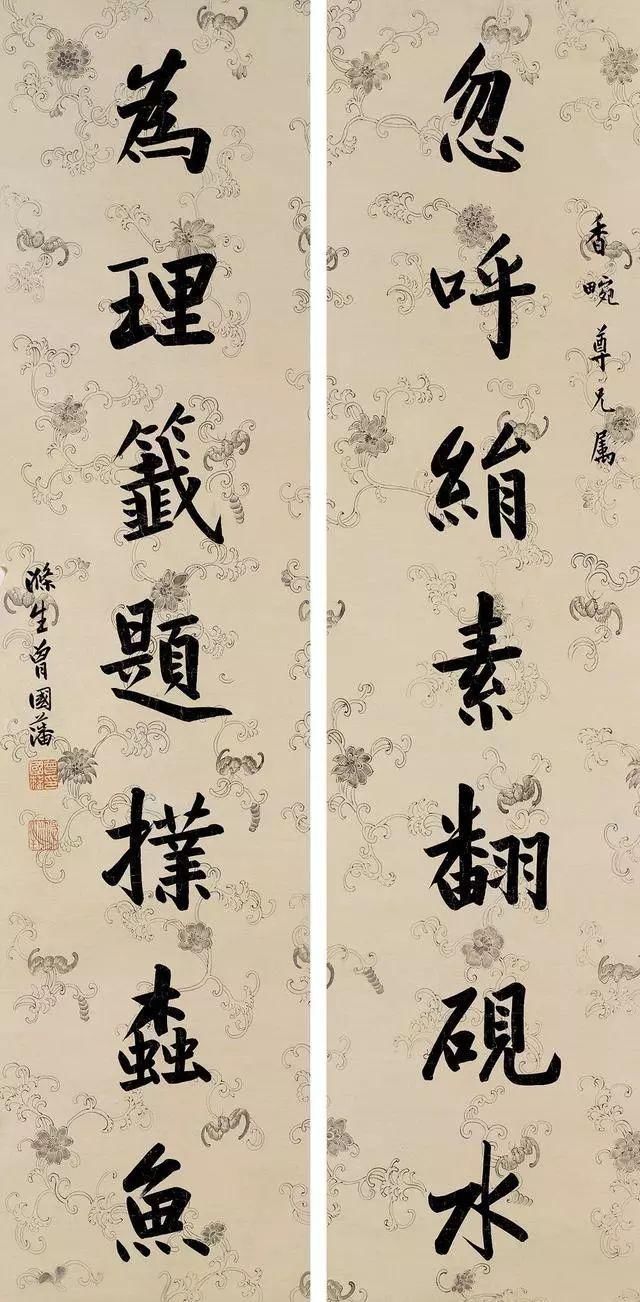 香畹尊兄属
忽呼絹素翻硯水
為理籤題撲蠹魚
滌生曾國藩